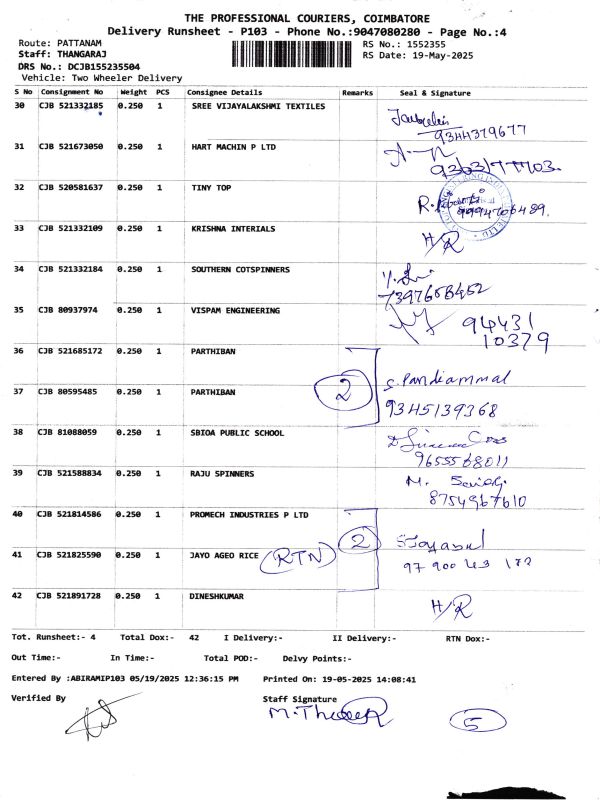 THE PROFESSIONAL COURIERS, COIMBATORE
Delivery Runsheet - P103 - Phone No.:9047080280 - Page No.:4
Route: PATTANAM RS No.: 1552355
Staff: THANGARAJ RS Date: 19-May-2025
DRS No.: DCJB155235504
Vehicle: Two Wheeler Delivery
S No Consignment No Weight PCS Consignee Details Remarks Seal & Signature
30 CJB 521332185 0.250 1 SREE VIJAYALAKSHMI TEXTILES
9344379677
31 CJB 521673050 0.250 1 HART MACHIN P LTD
32 CJB 520581637 0.250 1 TINY TOP
33 CJB 521332109 0.250 1 KRISHNA INTERIALS
H/R
34 CJB 521332184 0.250 1 SOUTHERN COTSPINNERS
7397668452
35 CJB 80937974 0.250 1 VISPAM ENGINEERING
94431
10379
36 CJB 521685172 0.250 1 PARTHIBAN
S. Pandiammal
37 CJB 80595485 0.250 1 PARTHIBAN 2
9345139368
38 CJB 81088059 0.250 1 SBIOA PUBLIC SCHOOL
9655568011
39 CJB 521588834 0.250 1 RAJU SPINNERS
8754967610
40 CJB 521814586 0.250 1 PROMECH INDUSTRIES P LTD
2
41 CJB 521825590 0.250 1 JAYO AGEO RICE RTN
97900 43 172
42 CJB 521891728 0.250 1 DINESHKUMAR
H/R
Tot. Runsheet:- 4 Total Dox:- 42 I Delivery:- II Delivery:- RTN Dox:-
Out Time:- In Time:- Total POD:- Delvy Points:-
Entered By :ABIRAMIP103 05/19/2025 12:36:15 PM Printed On: 19-05-2025 14:08:41
Verified By Staff Signature
5